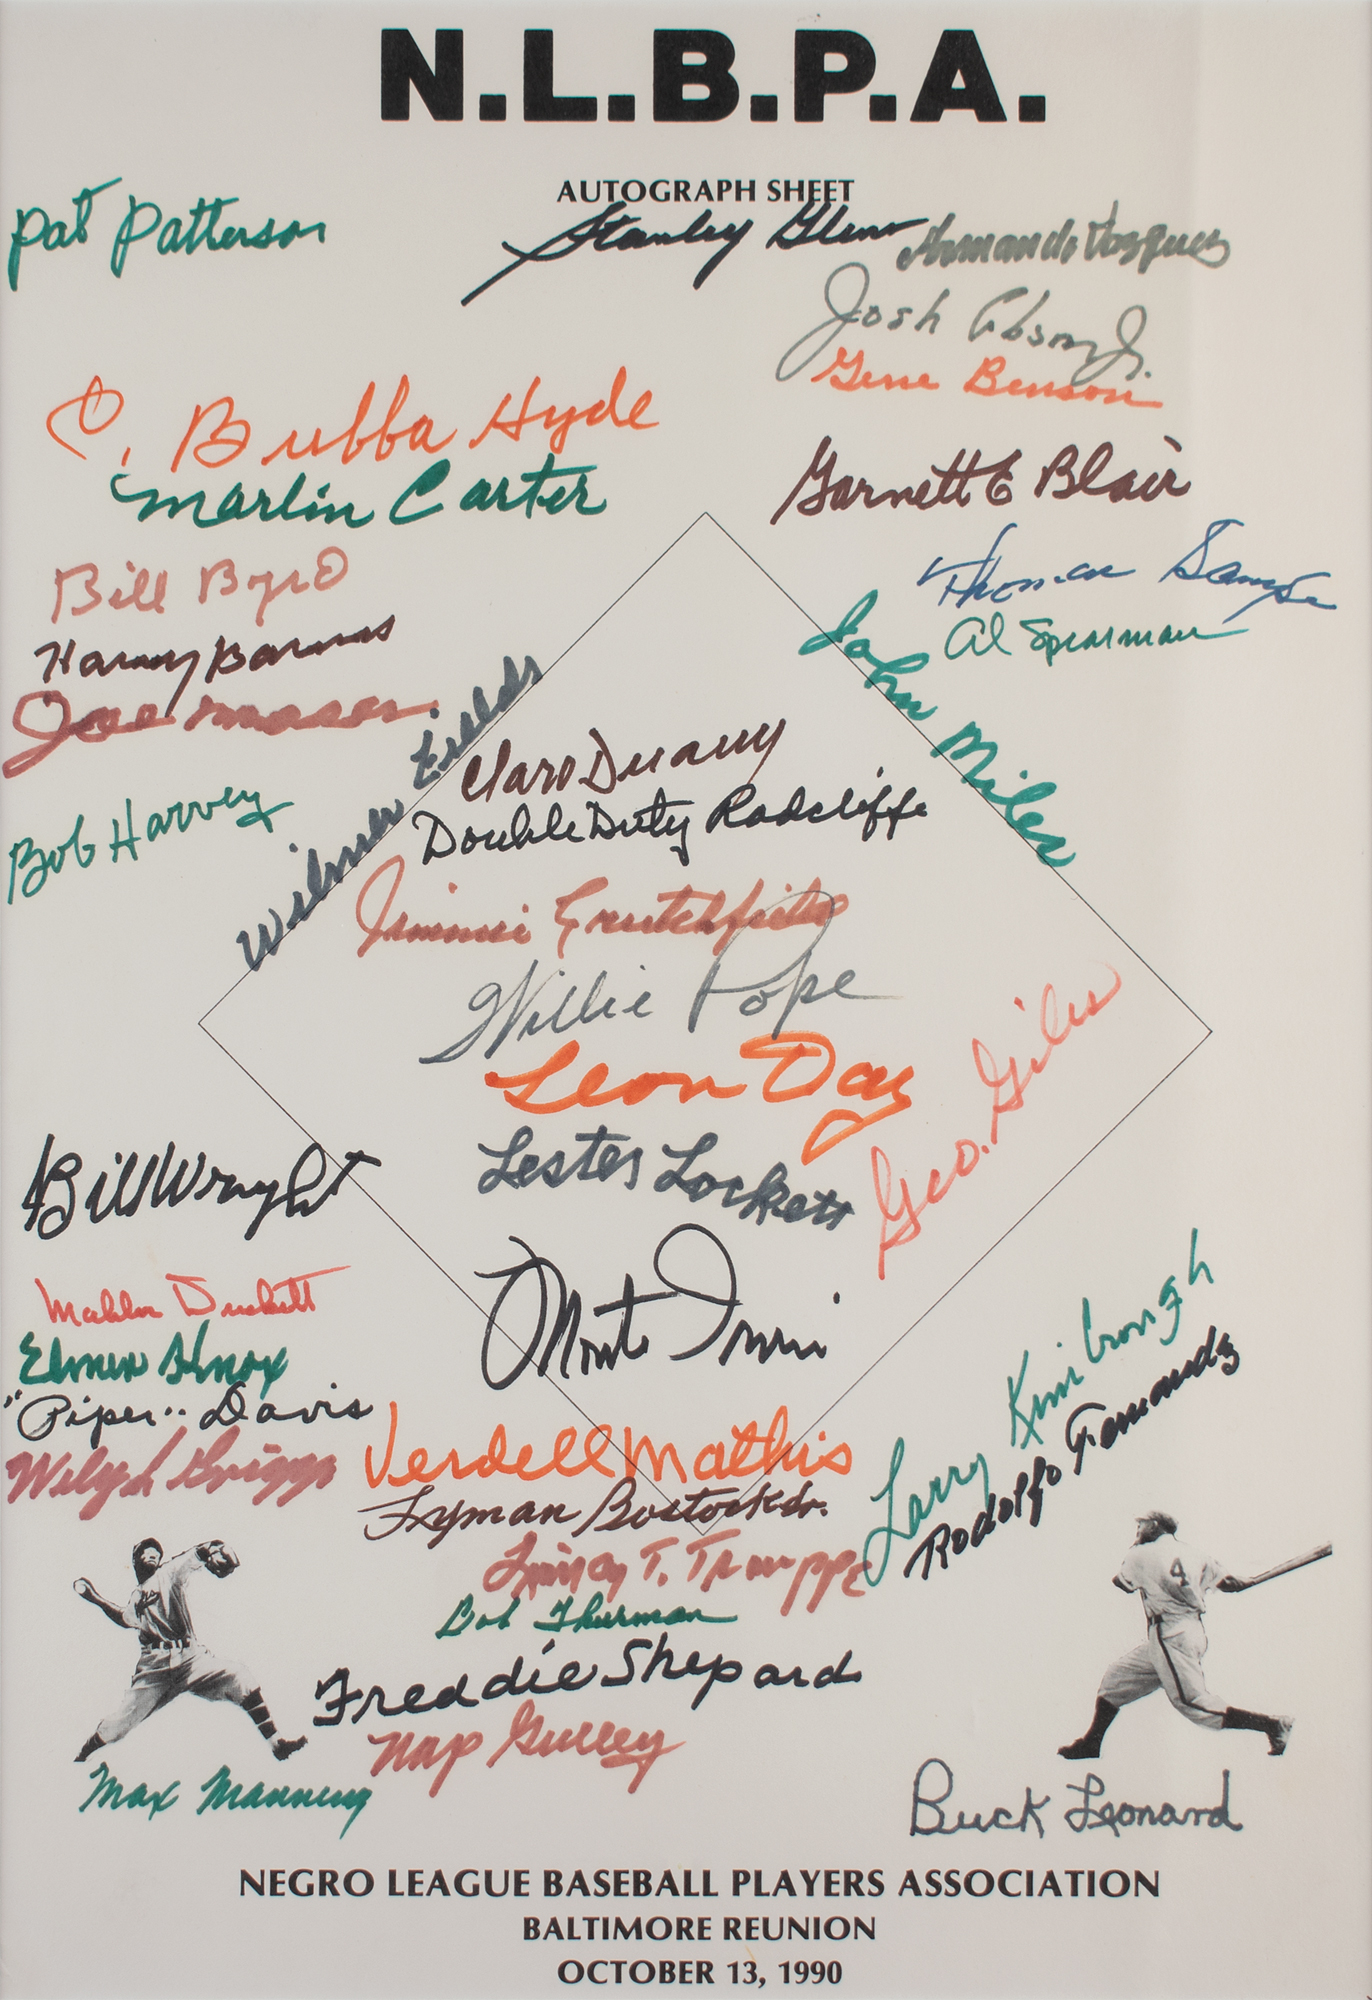 N.L.B.P.A.
AUTOGRAPH SHEET
Pat Patterson
Stanley Glenn
Armando Vazquez
Josh Gibson Jr.
Gene Benson
C. Bubba Hyde
Marlin Carter
Garnett E Blair
Bill Byrd
Thomas Sampson
Al Spearman
John Miles
Harry Barnes
Joe
Wilmer Fields
Claro Duany
Double Duty Radcliffe
Bob Harvey
Jimmie Crutchfield
Willie Pope
Leon Day
Geo. Giles
Lester Lockett
Bill Wright
Monte Irvin
Mahlon Duckett
Elmer Knox
"Piper" Davis
Wilyd Griggs
Verdell Mathis
Larry Kimbrough
Rodolfo Fernandez
Lyman Bostock Sr.
Quincy T. Trouppe
Bob Thurman
Freddie Shepard
Nap Gulley
4
Max Manning
Buck Leonard
NEGRO LEAGUE BASEBALL PLAYERS ASSOCIATION
BALTIMORE REUNION
OCTOBER 13, 1990